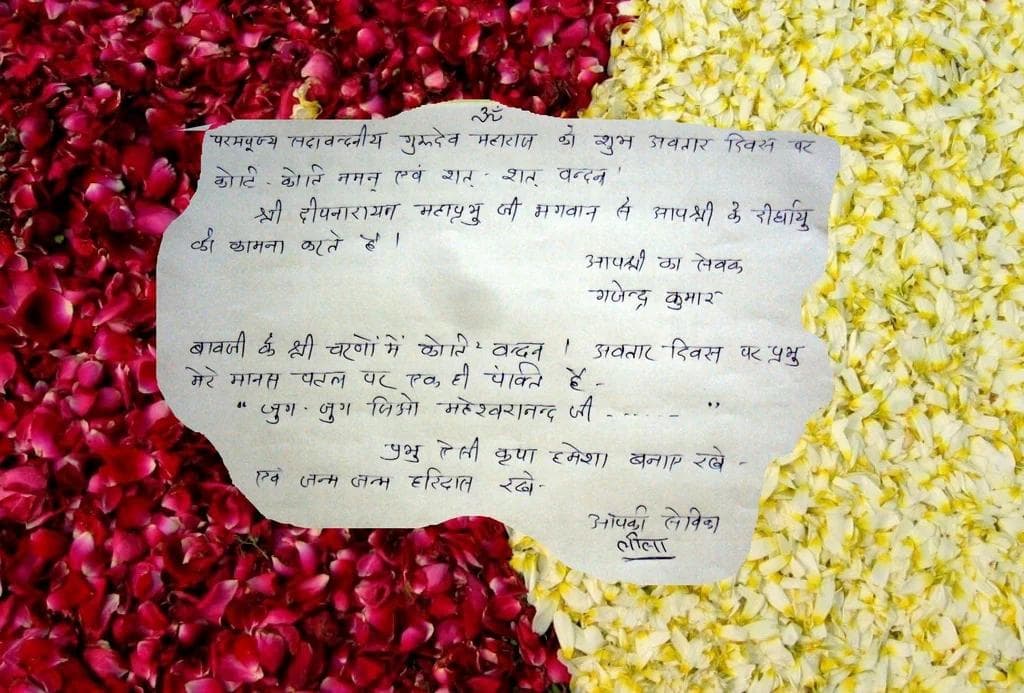 ॐ
परमपूज्य सदावन्दनीय गुरुदेव महाराज को शुभ अवतार दिवस पर
कोटि - कोटि नमन् एवं शत् - शत् वन्दन !
श्री दीपनारायन महाप्रभु जी भगवान से आपश्री के दीर्घायु
की कामना करते है ।
आपश्री का सेवक
गजेन्द्र कुमार
बावजी के श्री चरणों में कोटि - वन्दन ! अवतार दिवस पर प्रभु
मेरे मानस पतल पर एक ही पंक्ति है -
" जुग - जुग जिओ महेश्वरानन्द जी - - - - - - "
प्रभु ऐसी कृपा हमेशा बनाए रखे -
एवं जन्म जन्म हरिदास रखे -
आपकी सेविका
लीला